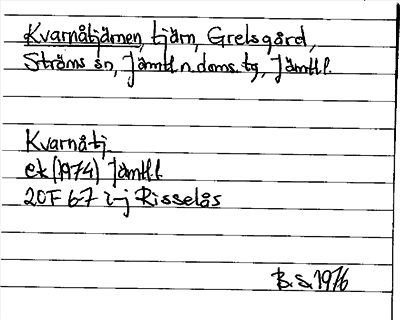 Kvarnåtjärnen, tjärn, Grelsgård,
Ströms sn, Jämtl. n. doms. tg, Jämtl l.
Kvarnåtj
ek (1974) Jämtl l.
20F 6-7 i-j Risselås
B. S. 1976